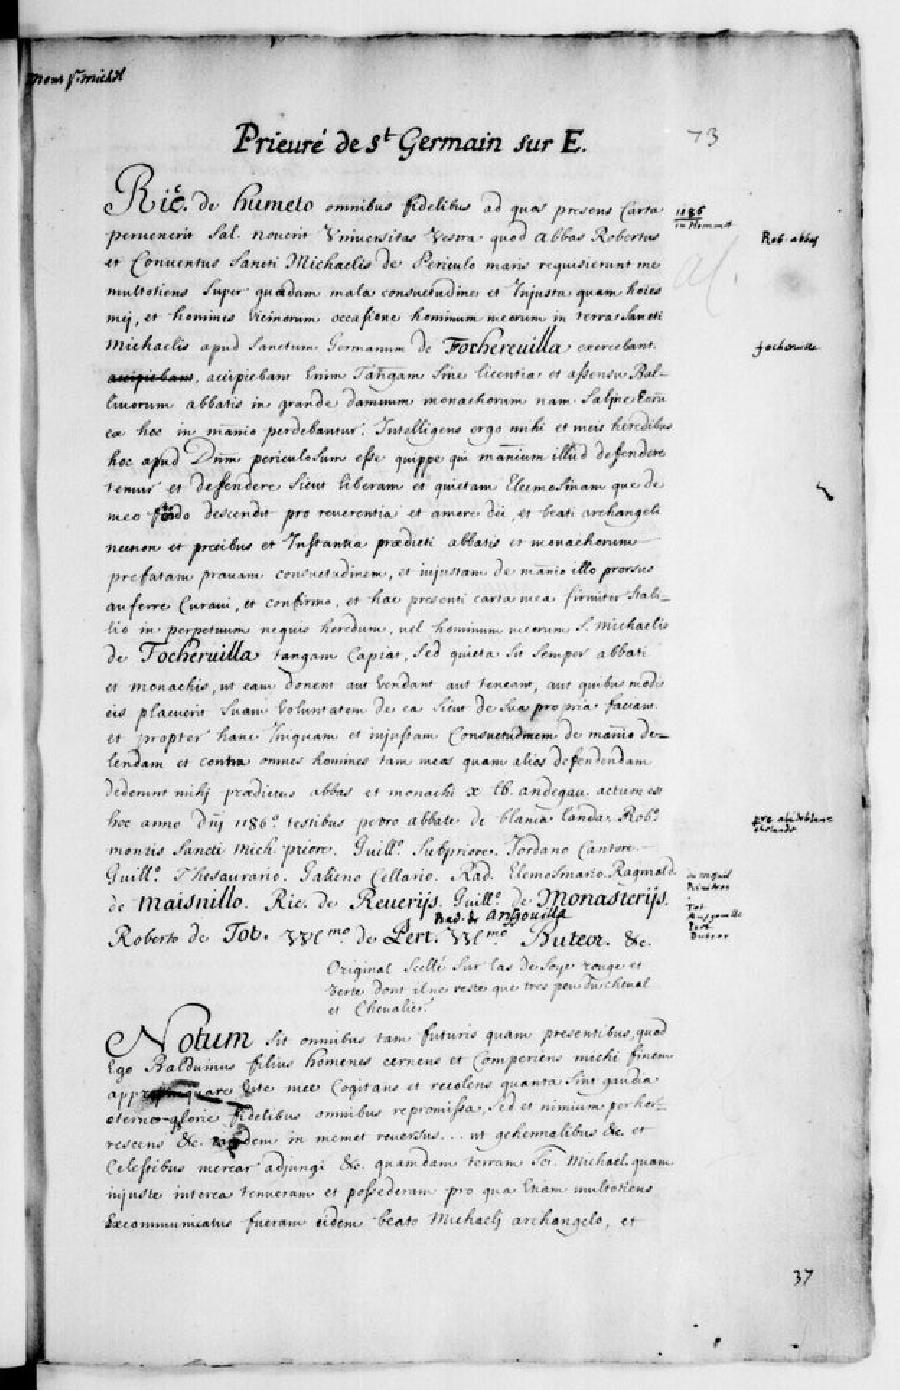 Mont St Michel
Prieuré de st Germain sur E. 73
Ric. de humeto omnibus fidelibus ad quos presens Carta
pervenerit Sal. noverit Universitas Vestra quod abbas Robertus
et Conventus Sancti Michaelis de Periculo maris requisierunt me
multotiens super quadam mala consuetudine et Injusta quam hoies
mej, et homines vicinorum occasione hominum meorum in terra Sancti
Michaelis apud Sanctum Germanum de Fochereuilla exercebant.
accipiebant, accipiebant Enim Tangam Sine licentia et assensu Bal-
livorum abbatis in grande damnum monachorum nam Saline
ex hoc in manio perdebantur. Intelligens ergo mihi et meis heredibus
hoc apud Dnm periculosum esse quippe qui manium illud defendere
temur et deffendere sicut liberam et quietam Eleemosinam que de
meo descendit pro reverentia et amore dei, et beati archangeli
necnon et precibus et Instantia prædicti abbatis et monachorum
prefatam pravam consuetudinem, et injustam de manio illo prorsus
auferre Curavi, et confirmo, et hac presenti carta mea firmiter Stati-
tio in perpetuum nequis heredum, vel hominum meorum S. Michaelis
de Focheruilla tangam Capiat, Sed quieta Sit Semper abbati
et monachis, ut eam donent aut Vendant aut teneant, aut quibus modis
eis placuerit Suam Voluntatem de ea Sicut de Sua propria faciant.
et propter hanc Iniquam et injustam Consuetudinem de manio de-
lendam et contra omnes homines tam meos quam alios defendendam
dederunt mihj prædictus abbas et monachi x lb. andegav. actum est
hoc anno Dnj 1186º. testibus petro abbate de blanca landa. Robº.
montis Sancti Mich priore. Guillº. Subpriore. Jordano Cantore.
Guillº. Thesaurario. Galieno Cellario. Rad. Elemosinario. Raginald.
de Maisnillo. Ric. de Reverijs. Guillº. de Monasterijs.
Rad. de Angouilla
Roberto de Tot. Wlmo de Pert. Wlmo Buteor. &c.
Original Scellé Sur las de Soye rouge et
Verte dont il ne reste que tres peu du cheval
et Chevalier.
Notum Sit omnibus tam futuris quam presentibus, quod
Ego Balduinus filius homenes cernens et Comperiens michi finem
appropinquare Vite mee Cogitans et recolens quanta Sint gaudia
eterne glorie fidelibus omnibus repromissa, Sed et nimium perhor-
rescens &c. tandem in memet reversus... ut gehennalibus &c. et
Celestibus merear adjungi &c. quamdam terram Sci Michael. quam
injuste interea tenueram et possederam pro qua Etiam multotiens
Excommunicatus fueram eidem beato Michaelj archangelo, et
1186
Rob. abbas
37